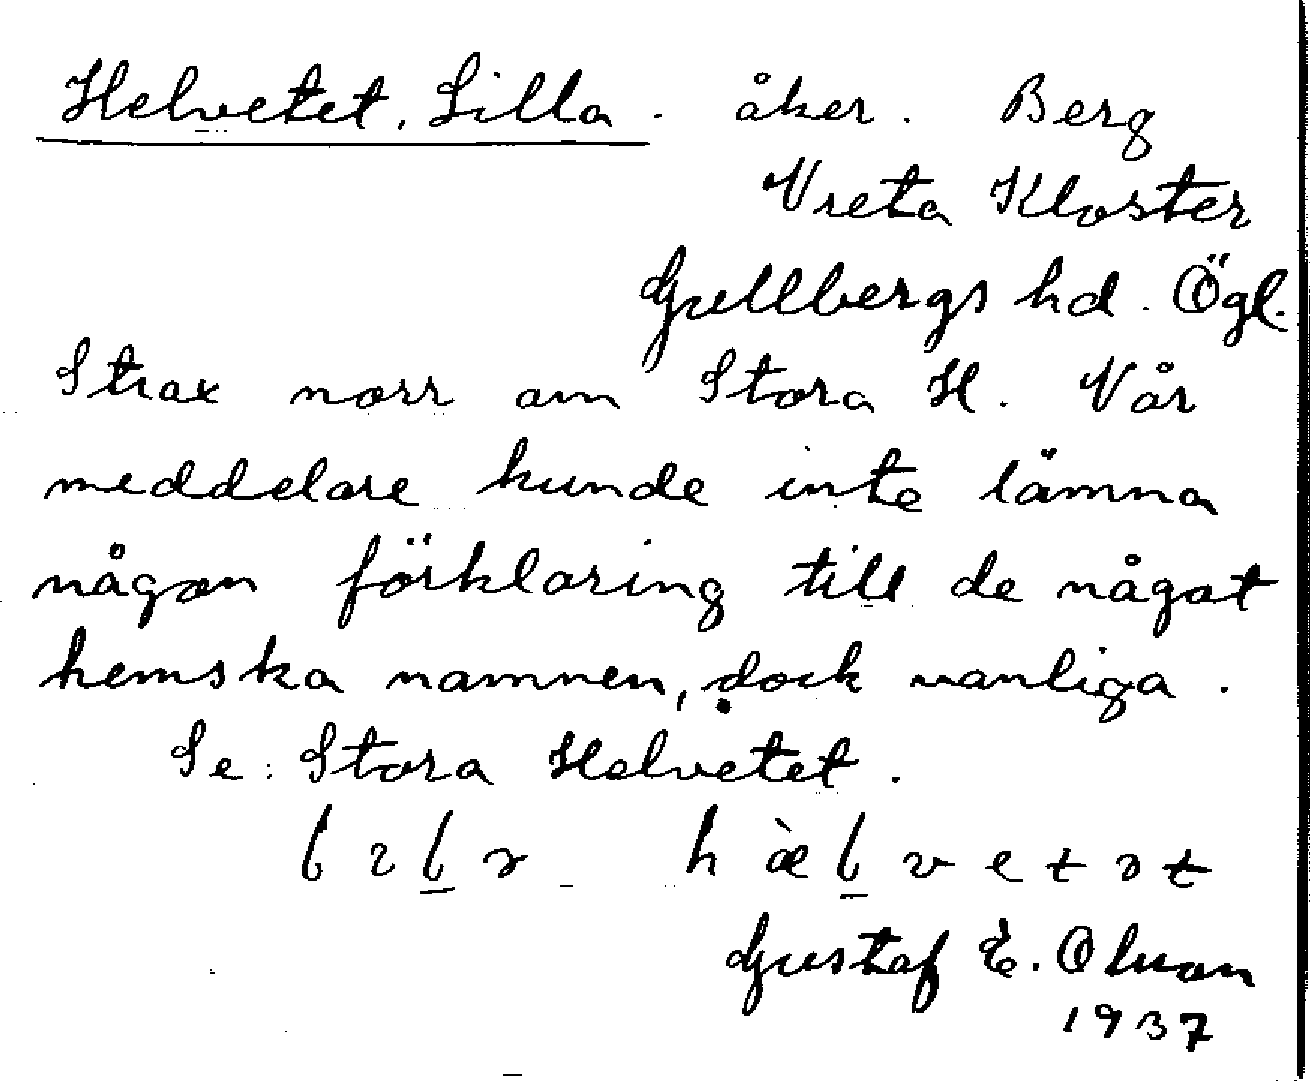 Helvetet, Lilla. åker. Berg
Vreta Kloster
Gullbergs hd. Ögl.
Strax norr om Stora H. Vår
meddelare kunde inte lämna
någon förklaring till de något
hemska namnen, dock vanliga.
Se: Stora Helvetet.
Gustaf E. Olson
1937